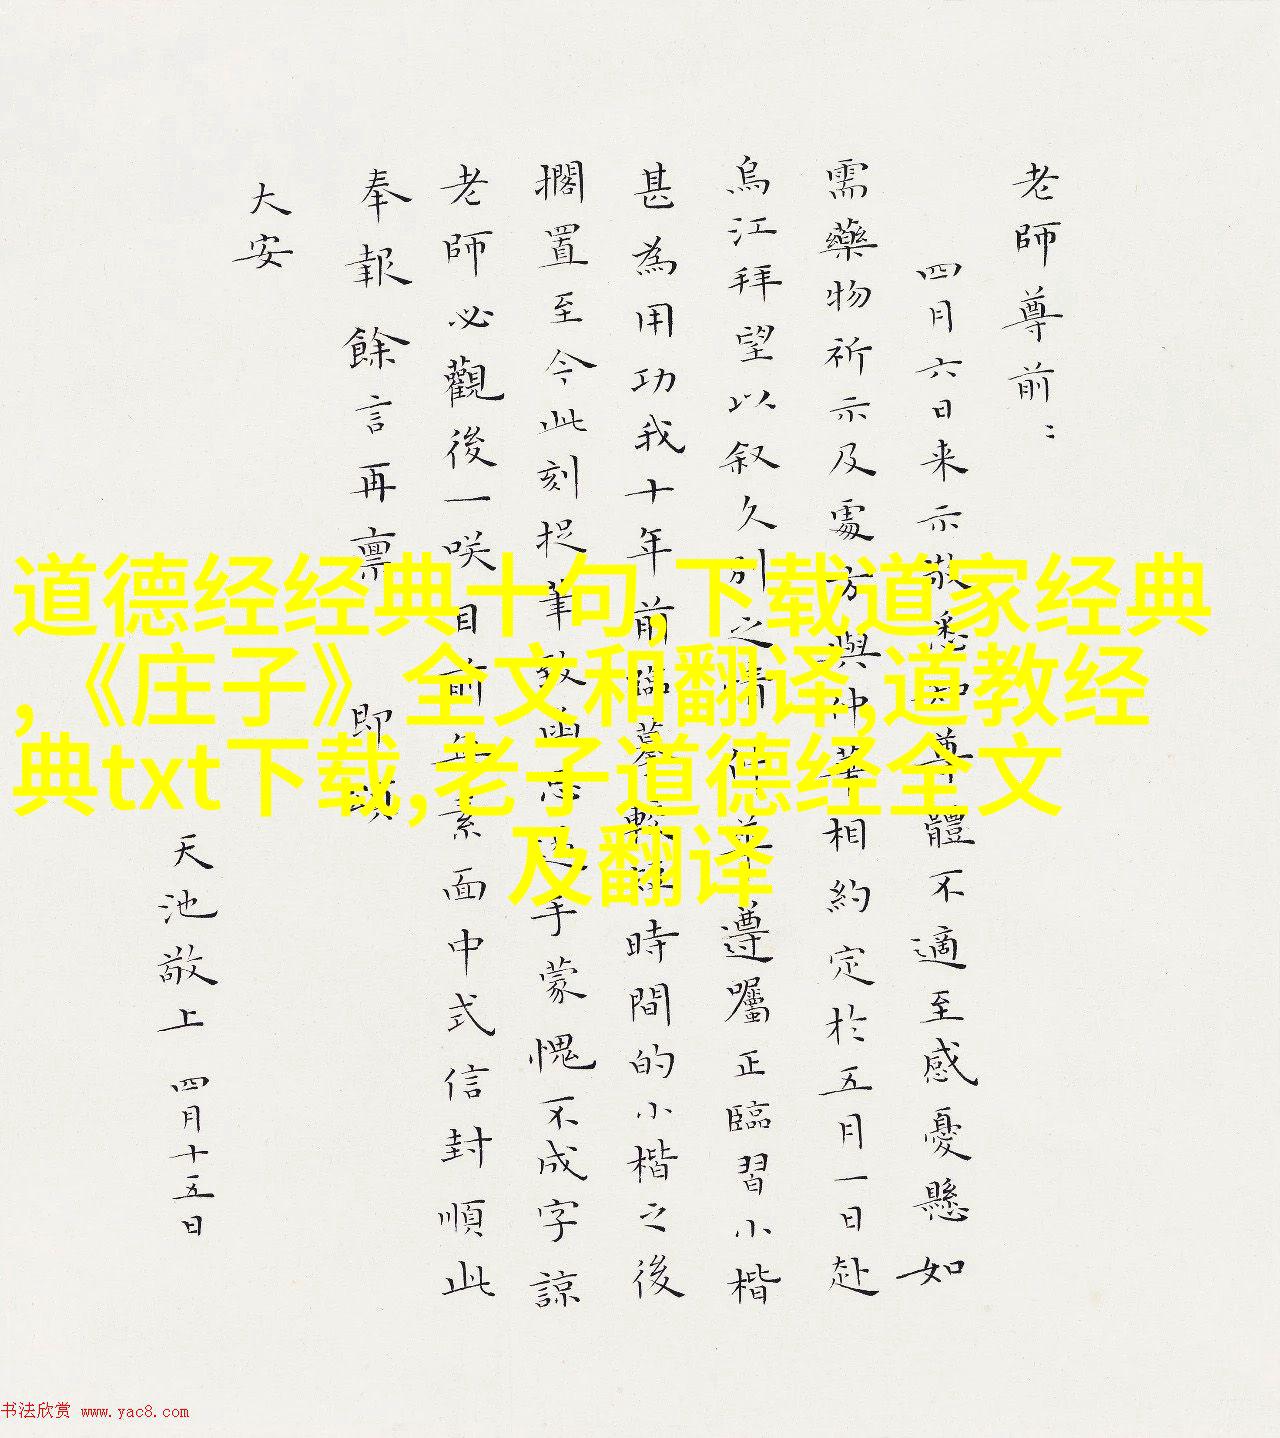 老師尊前：
四月六日来示敬悉知尊體不適至感憂懸如
需藥物祈示及處方與仲華相約定於五月一日赴
烏江拜望以叙久別之情仲華遵囑正臨習小楷
甚為用功我十年前臨摹時間的小楷之後
擱置至今此刻捉筆致函手蒙愧不成字諒
老師必觀後一咲目前素面中式信封順此
奉報餘言再稟 即頌
大安
天池敬上 四月十五日
道德经经典十句,下载道家经典
,《庄子》全文和翻译,道教经
典txt下载,老子道德经全文
及翻译
书法欣赏 www.yac8.com